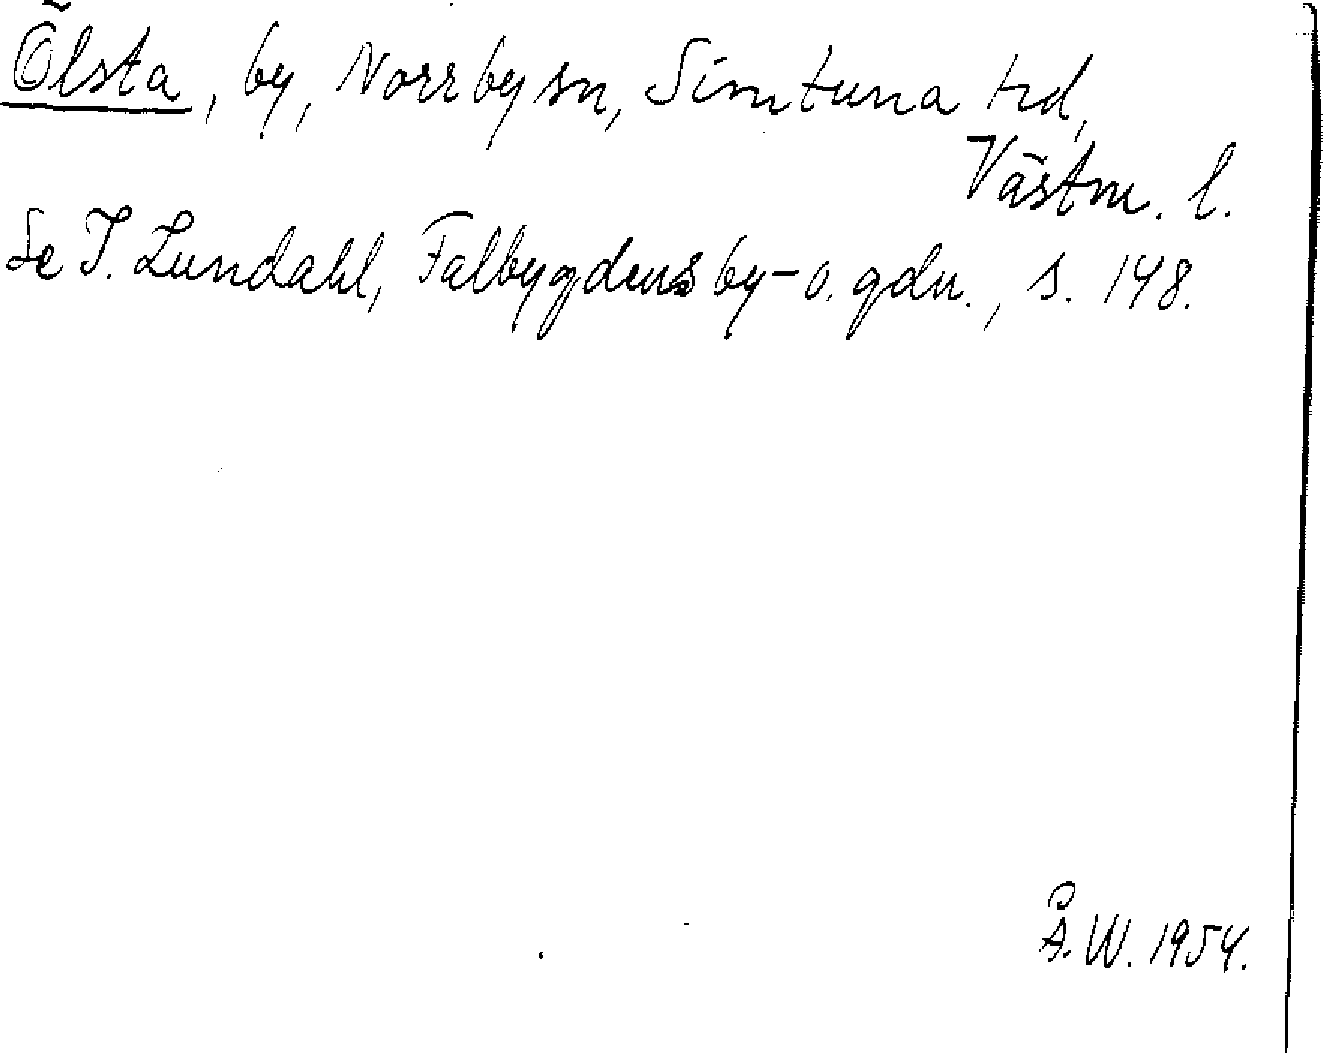 Ölsta, by, Norrby sn, Simtuna hd,
Västm. l.
Se I. Lundahl, Falbygdens by- o. gdn., s. 148.
Å. W. 1954.